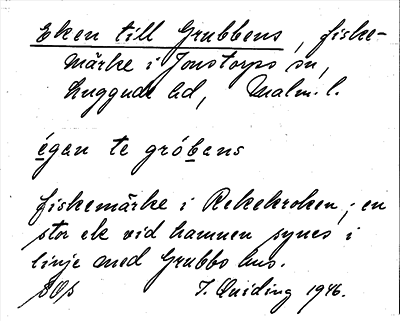 Eken till Grubbens, fiske-
märke i Jonstorps sn,
Luggude hd, Malm. l.
égan te gróbens
fiskemärke i Rekekroken; en
stor ek vid hamnen synes i
linje med Grubbs hus.
J. Quiding 1946.